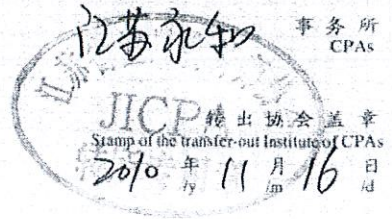 江苏永和 事务所
CPAs
JICP
转出协会盖章
Stamp of the transfer-out Institute of CPAs
2010 年 11 月 16 日
/y /m /d